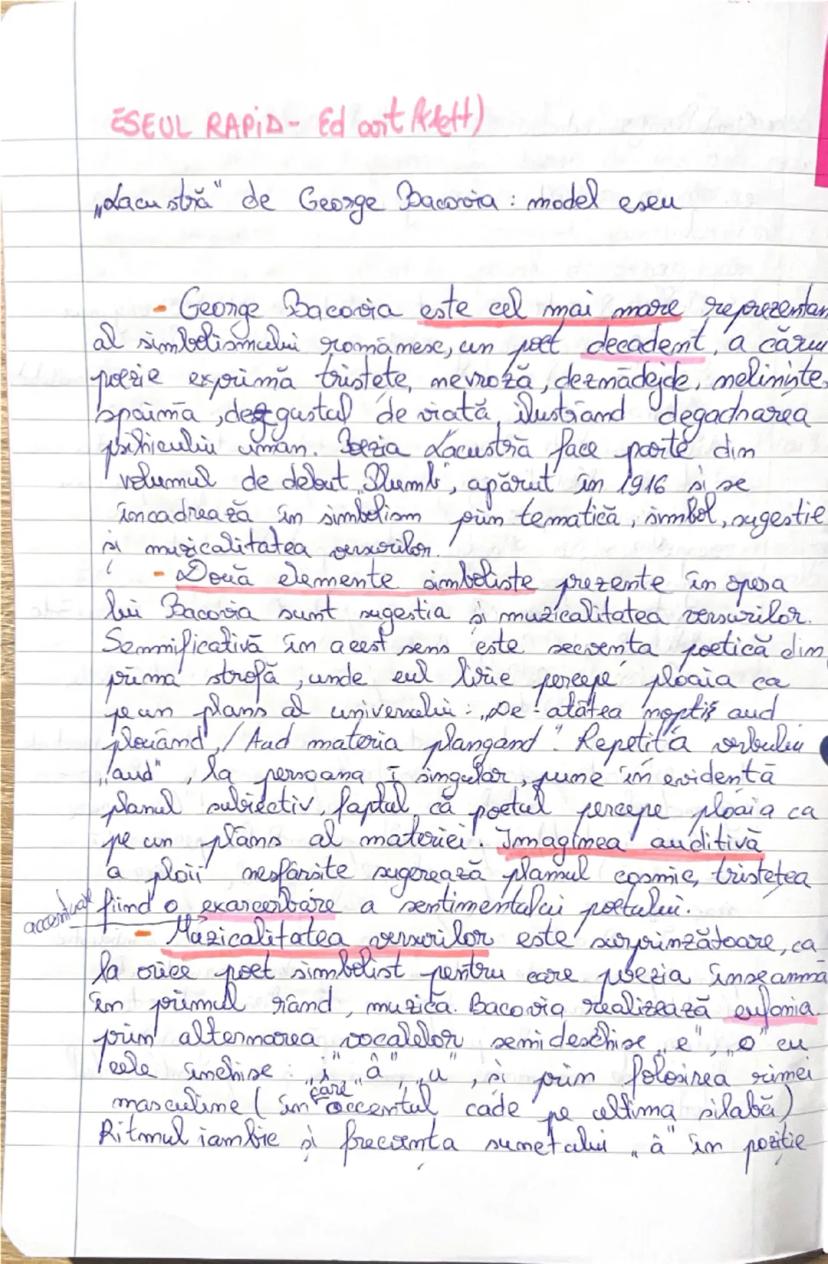 ESEUL RAPID - Ed art
„Lacustră" de George Bacovia : model eseu
- George Bacovia este cel mai mare reprezentan
al simbolismului românesc, un poet decadent, a cărui
poezie exprimă tristețe, nevroză, deznădejde, neliniște,
spaimă, dezgustul de viață, ilustrând degadnarea
psihicului uman. Poezia Lacustră face parte din
volumul de debut „Plumb", apărut în 1916 și se
încadrează în simbolism prin tematică, simbol, sugestie
și muzicalitatea versurilor.
- Două elemente simboliste prezente în opera
lui Bacovia sunt sugestia și muzicalitatea versurilor.
Semnificativă în acest sens este secvența poetică din
prima strofă, unde eul liric percepe ploaia ca
pe un plâns al universului: „De-atâtea nopți aud
plouând, / Aud materia plângând". Repetiția verbului
„aud", la persoana I singular, pune în evidență
planul subiectiv, faptul că poetul percepe ploaia ca
pe un plâns al materiei. Imaginea auditivă
a ploii nesfârșite sugerează planul cosmic, tristețea
accentuare
fiind o exarcerbare a sentimentului poetului.
- Muzicalitatea versurilor este surprinzătoare, ca
la orice poet simbolist pentru care poezia înseamnă
în primul rând, muzică. Bacovia realizează eufonia
prin alternarea vocalelor semideschise „e", „o" cu
cele închise : „i" „â", „u", și prin folosirea rimei
masculine (în care accentul cade pe ultima silabă)
Ritmul iambic și frecvența sunetului „â" în poziție